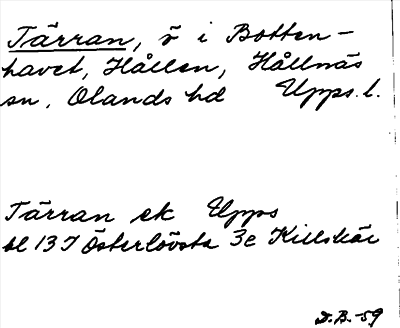 Tärran, ö i Botten-
havet, Hållen, Hållnäs
sn, Olands hd Upps. l.
Tärran ek Upps
bl 13 I Österlövsta 3e Killskär
D.B.-59